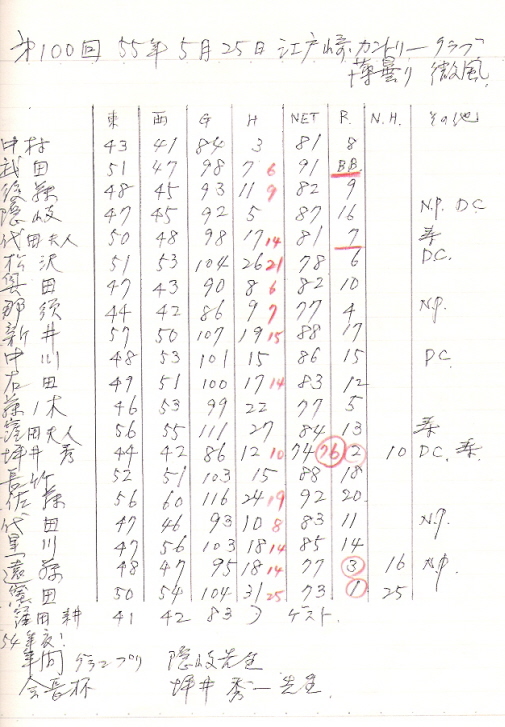 第100回 55年5月25日 江戸崎カントリークラブ
薄曇り 微風
東 西 G H NET R. N.H. その他
中村 43 41 84 3 81 8
武田 51 47 98 7 6 91 B.B.
後藤 48 45 93 11 9 82 9
隠岐 47 45 92 5 87 16 N.P. D.C
代田夫人 50 48 98 17 14 81 7
松沢 51 53 104 26 21 78 6 D.C.
奥田 47 43 90 8 6 82 10
那須 44 42 86 9 7 77 4 N.P.
新井 57 50 107 19 15 88 17
中川 48 53 101 15 86 15 D.C.
右田 49 51 100 17 14 83 12
藤木 46 53 99 22 77 5
窪田夫人 56 55 111 27 84 13
坪井秀 44 42 86 12 10 74 76 2 10 D.C.
長竹 52 51 103 15 88 18
佐藤 56 60 116 24 19 92 20
代田 47 46 93 10 8 83 11 N.P.
黒川 47 56 103 18 14 85 14
遠藤 48 47 95 18 14 77 3 16 N.P.
窪田 50 54 104 31 25 73 1 25
窪田耕 41 42 83 ) ゲスト.
54年度!
年間グランプリ 隠岐先生
会長杯 坪井秀一先生